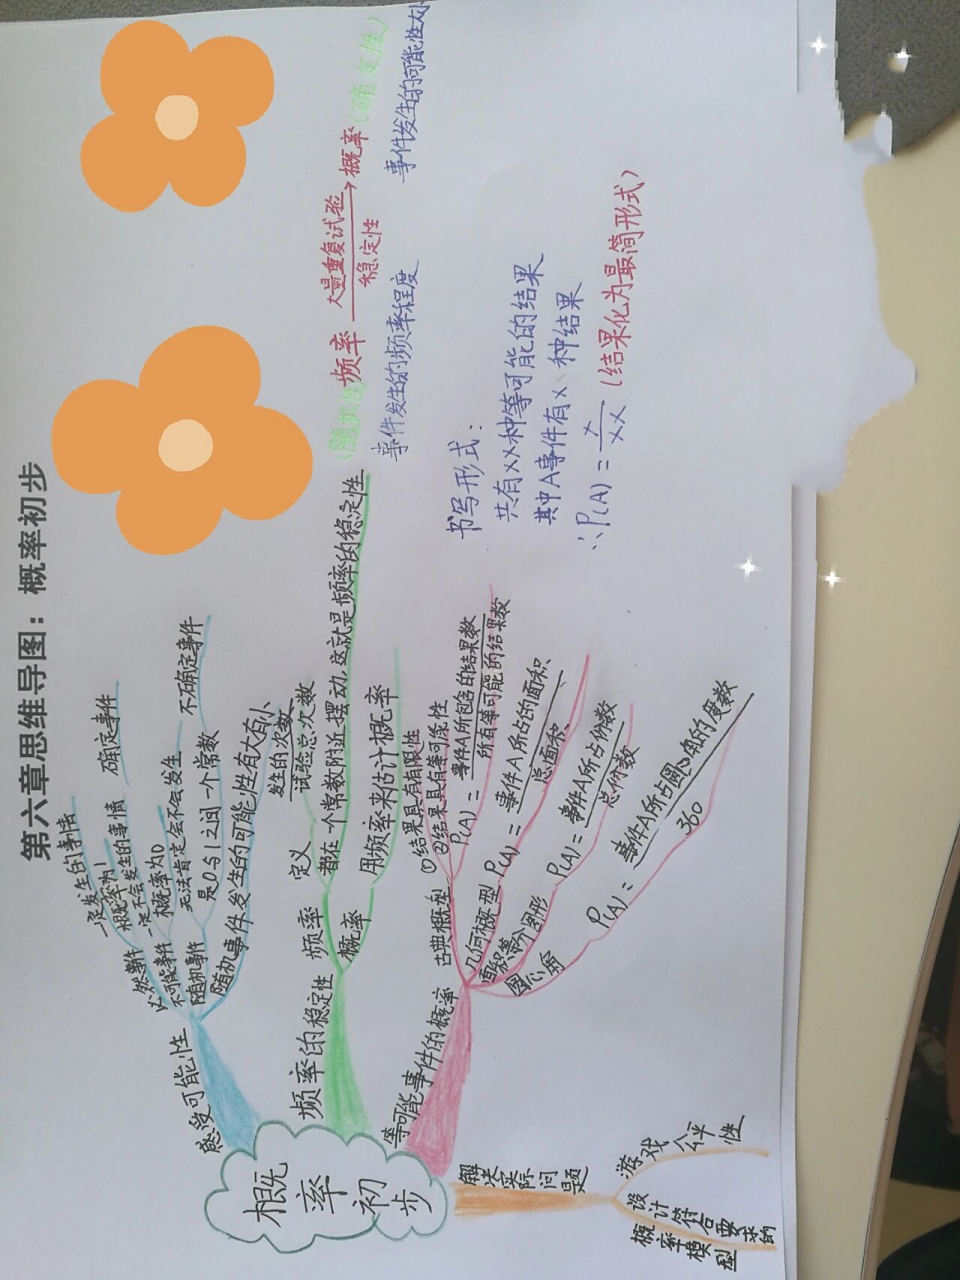 第六章思维导图：概率初步
概率初步
感受可能性
必然事件
一定发生的事情
概率为1
不可能事件
一定不会发生的事情
概率为0
确定事件
随机事件
无法肯定会不会发生
是0与1之间一个常数
不确定事件
随机事件发生的可能性有大有小
频率的稳定性
频率
定义
发生的次数
试验总次数
都在一个常数附近摆动,这就是频率的稳定性
概率
用频率来估计概率
(随机性)频率 大量重复试验 概率(确定性)
稳定性
事件发生的频率程度
事件发生的可能性大小
等可能事件的概率
古典概型
①结果具有有限性
②结果具有等可能性
P(A)= 事件A所包含的结果数
所有等可能的结果数
几何概型 P(A)= 事件A所占的面积
总面积
面积等分图形 P(A)= 事件A所占份数
总份数
圆心角 P(A)= 事件A所占圆心角的度数
360
书写形式：
共有xx种等可能的结果
其中A事件有x种结果
∴P(A)= x
xx (结果化为最简形式)
解决实际问题
游戏公平性
设计符合要求的
概率模型